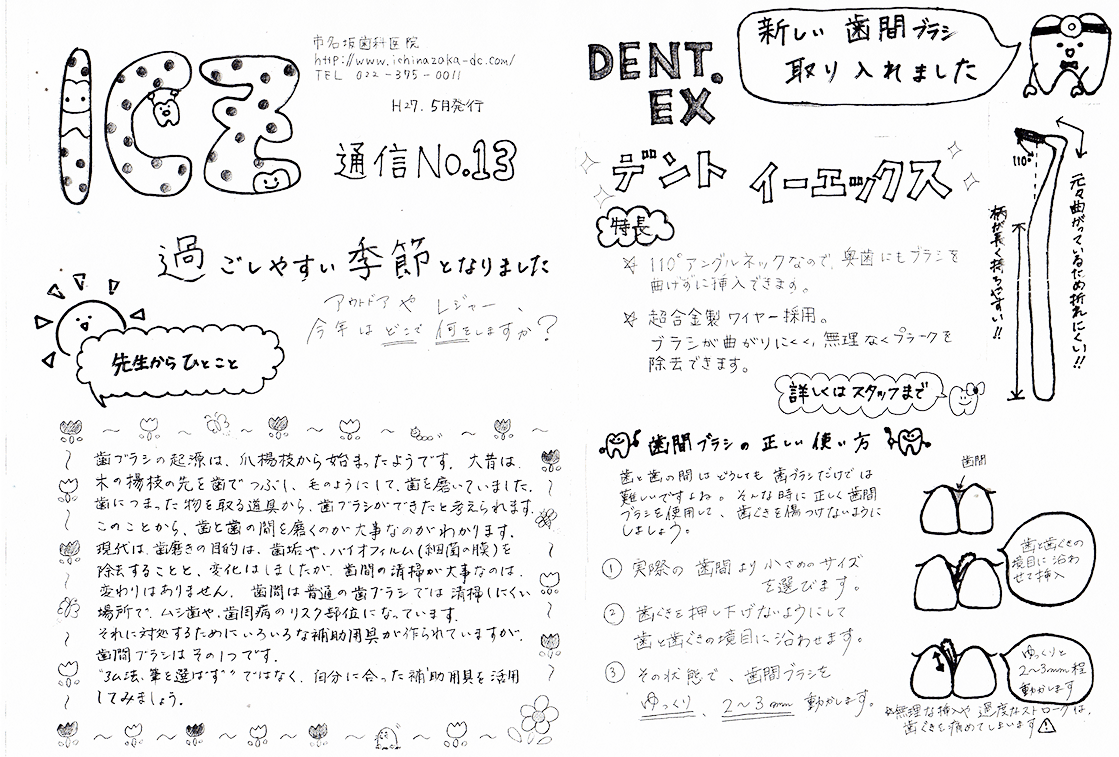 ICZ
市名坂歯科医院
http://www.ichinazaka-dc.com/
TEL 022-375-0011
H27.5月発行
通信No.13
過ごしやすい季節となりました
アウトドアや レジャー、
今年はどこで何をしますか?
先生からひとこと
歯ブラシの起源は、爪楊枝から始まったようです。大昔は、
木の楊枝の先を歯でつぶし、毛のようにして、歯を磨いていました。
歯につまった物を取る道具から、歯ブラシができたと考えられます。
このことから、歯と歯の間を磨くのが大事なのがわかります。
現代は、歯磨きの目的は、歯垢や、バイオフィルム(細菌の膜)を
除去することと、変化はしましたが、歯間の清掃が大事なのは、
変わりはありません。歯間は普通の歯ブラシでは清掃しにくい
場所で、ムシ歯や、歯周病のリスク部位になっています。
それに対処するためにいろいろな補助用具が作られていますが、
歯間ブラシはその1つです。
"弘法、筆を選ばず"ではなく、自分に合った補助用具を活用
してみましょう。
新しい 歯間ブラシ
取り入れました
DENT.
EX
デント イーエックス
特長
☆ 110°アングルネックなので、奥歯にもブラシを
曲げずに挿入できます。
☆ 超合金製ワイヤー採用。
ブラシが曲がりにくく、無理なくプラークを
除去できます。
詳しくはスタッフまで
110°
元々曲がっているため折れにくい!!
柄が長く持ちやすい!!
歯間ブラシの正しい使い方
歯と歯の間はどうしても歯ブラシだけでは
難しいですよね。そんな時に正しく歯間
ブラシを使用して、歯ぐきを傷つけないように
しましょう。
① 実際の歯間より小さめのサイズ
を選びます。
② 歯ぐきを押し下げないようにして
歯と歯ぐきの境目に沿わせます。
③ その状態で、歯間ブラシを
ゆっくり、2〜3mm 動かします。
歯間
歯と歯ぐきの
境目に沿わ
せて挿入
ゆっくりと
2〜3mm程
動かします
※無理な挿入や過度なストロークは、
歯ぐきを痛めてしまいます⚠